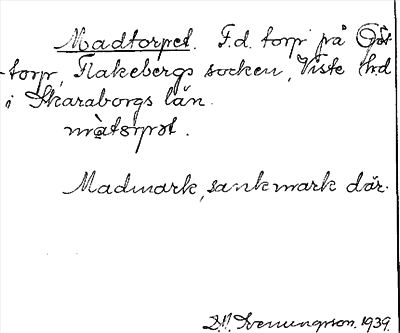 Madtorpet. F.d. torp på
torp, Flakebergs socken, Viste hd
i Skaraborgs län.
Madmark, sankmark där.
1939.